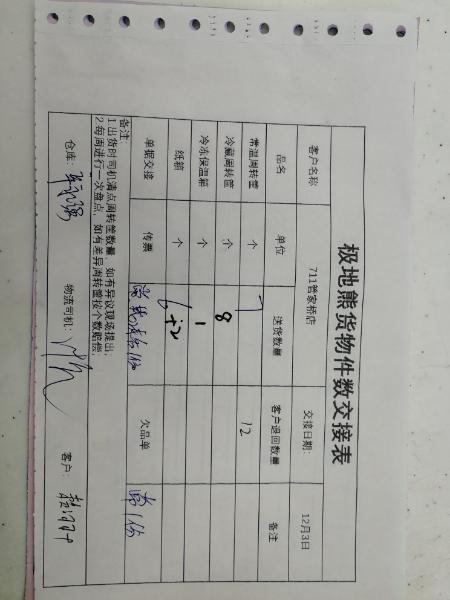 极地熊货物件数交接表
客户名称 711管家桥店 交接日期: 12月3日
品名 单位 送货数量 客户退回数量 备注
常温周转筐 个 7 12
冷藏周转筐 个 8
冷冻保温箱 个 1
纸箱 个 6+2
单据交接 传票 欠品单
备注
1.出货时司机清点周转筐数量,如有异议现场提出;
2.每周进行一次盘点,如有差异周转筐按个数赔偿;
仓库: 物流司机: 客户: